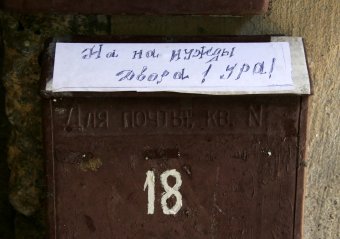 На на нужды
двора 1 ура!
Для почты, кв. N
18